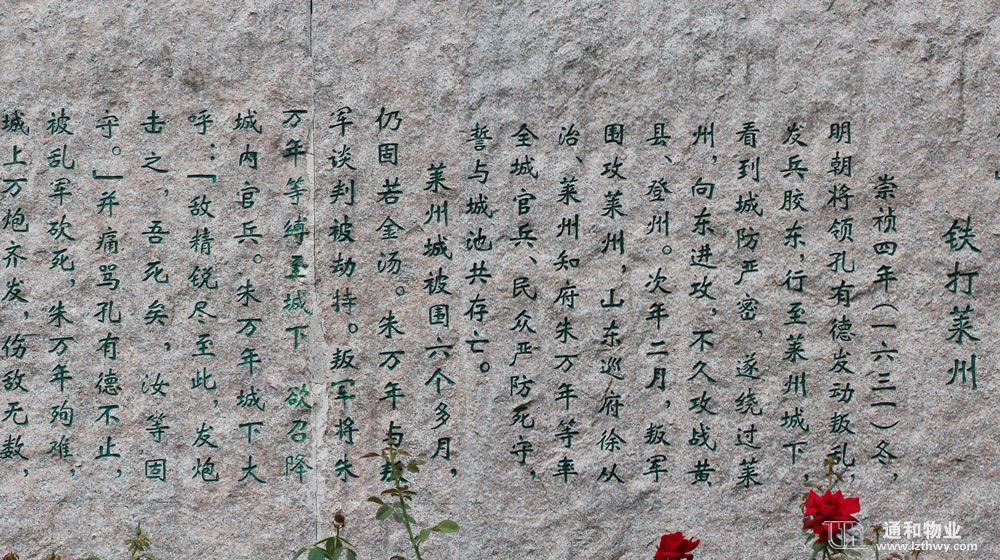 铁打莱州
崇祯四年(一六三一)冬,
明朝将领孔有德发动叛乱,
发兵胶东,行至莱州城下,
看到城防严密,遂绕过莱
州,向东进攻,不久攻战黄
县、登州。次年二月,叛军
围攻莱州,山东巡府徐从
治、莱州知府朱万年等率
全城官兵、民众严防死守,
誓与城池共存亡。
莱州城被围六个多月,
仍固若金汤。朱万年与叛
军谈判被劫持。叛军将朱
万年等缚至城下 欲召降
城内官兵。朱万年城下大
呼:「敌精锐尽至此,发炮
击之,吾死矣,汝等固
守。」并痛骂孔有德不止,
被乱军砍死,朱万年殉难,
城上万炮齐发,伤敌无数,
通和物业
www.lzthwy.com